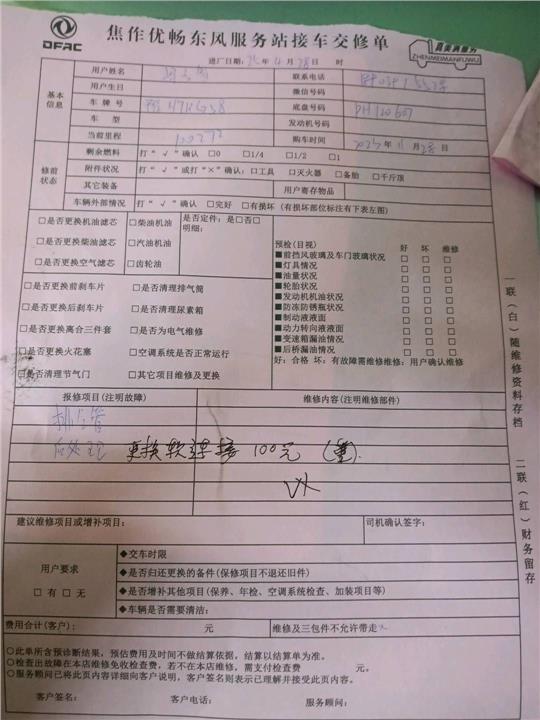 DFAC
焦作优畅东风服务站接车交修单
真美满服务
ZHENMEIMANFUWU
进厂日期: 年 4月28日 时
基本信息
用户姓名 联系电话
用户生日 微信号码
车牌号 H7KG58 底盘号码 PH120607
车型 发动机号码
当前里程 购车时间 年11月28日
修前状态
剩余燃料 打“√”确认 □0 □1/4 □1/2 □1
附件状况 打“√”或打“×”确认:□工具 □灭火器 □备胎 □千斤顶
其它装备 用户寄存物品
车辆外部情况 打“√”确认 □完好 □有损坏(有损坏部位标注有下表左图)
□是否更换机油滤芯 □柴油机油 是否定件:是□否□
明细:
□是否更换柴油滤芯 □汽油机油
□是否更换空气滤芯 □齿轮油
□是否更换前刹车片 □是否清理排气筒
□是否更换后刹车片 □是否清理尿素箱
□是否更换离合三件套 □是否为电气维修
□是否更换火花塞 □空调系统是否正常运行
□是否清理节气门 □其它项目维修及更换
预检(目视) 好 坏 维修
■前挡风玻璃及车门玻璃状况 □ □ □
■灯具情况 □ □ □
■油量状况 □ □ □
■轮胎状况 □ □ □
■发动机机油状况 □ □ □
■防冻防锈瓶状况 □ □ □
■制动液液面 □ □ □
■动力转向液液面 □ □ □
■变速箱漏油情况 □ □ □
■后桥漏油情况 □ □ □
好:合格 坏:有故障需维修维修:用户确认维修
报修项目(注明故障) 维修内容(注明维修部件)
排气管
后处理 更换软连接 100元
建议维修项目或增补项目: 司机确认签字:
用户要求
□有 □无
◆交车时限
◆是否归还更换的备件(保修项目不退还旧件)
◆是否增补其他项目(保养、年检、空调系统检查、加装项目等)
◆车辆是否需要清洁:
费用合计(客户): 元 维修及三包件不允许带走
○此单所含预诊断结果,预估费用及时间不做结算依据,结算以结算单为准。
○检查出故障在本店维修免收检查费,若不在本店维修,需支付检查费 元。
○服务顾问已将此页内容详细向客户说明,客户签名则表示已理解并接受此页内容。
客户签名: 客户电话: 服务顾问:
一联(白)随维修资料存档
二联(红)财务留存